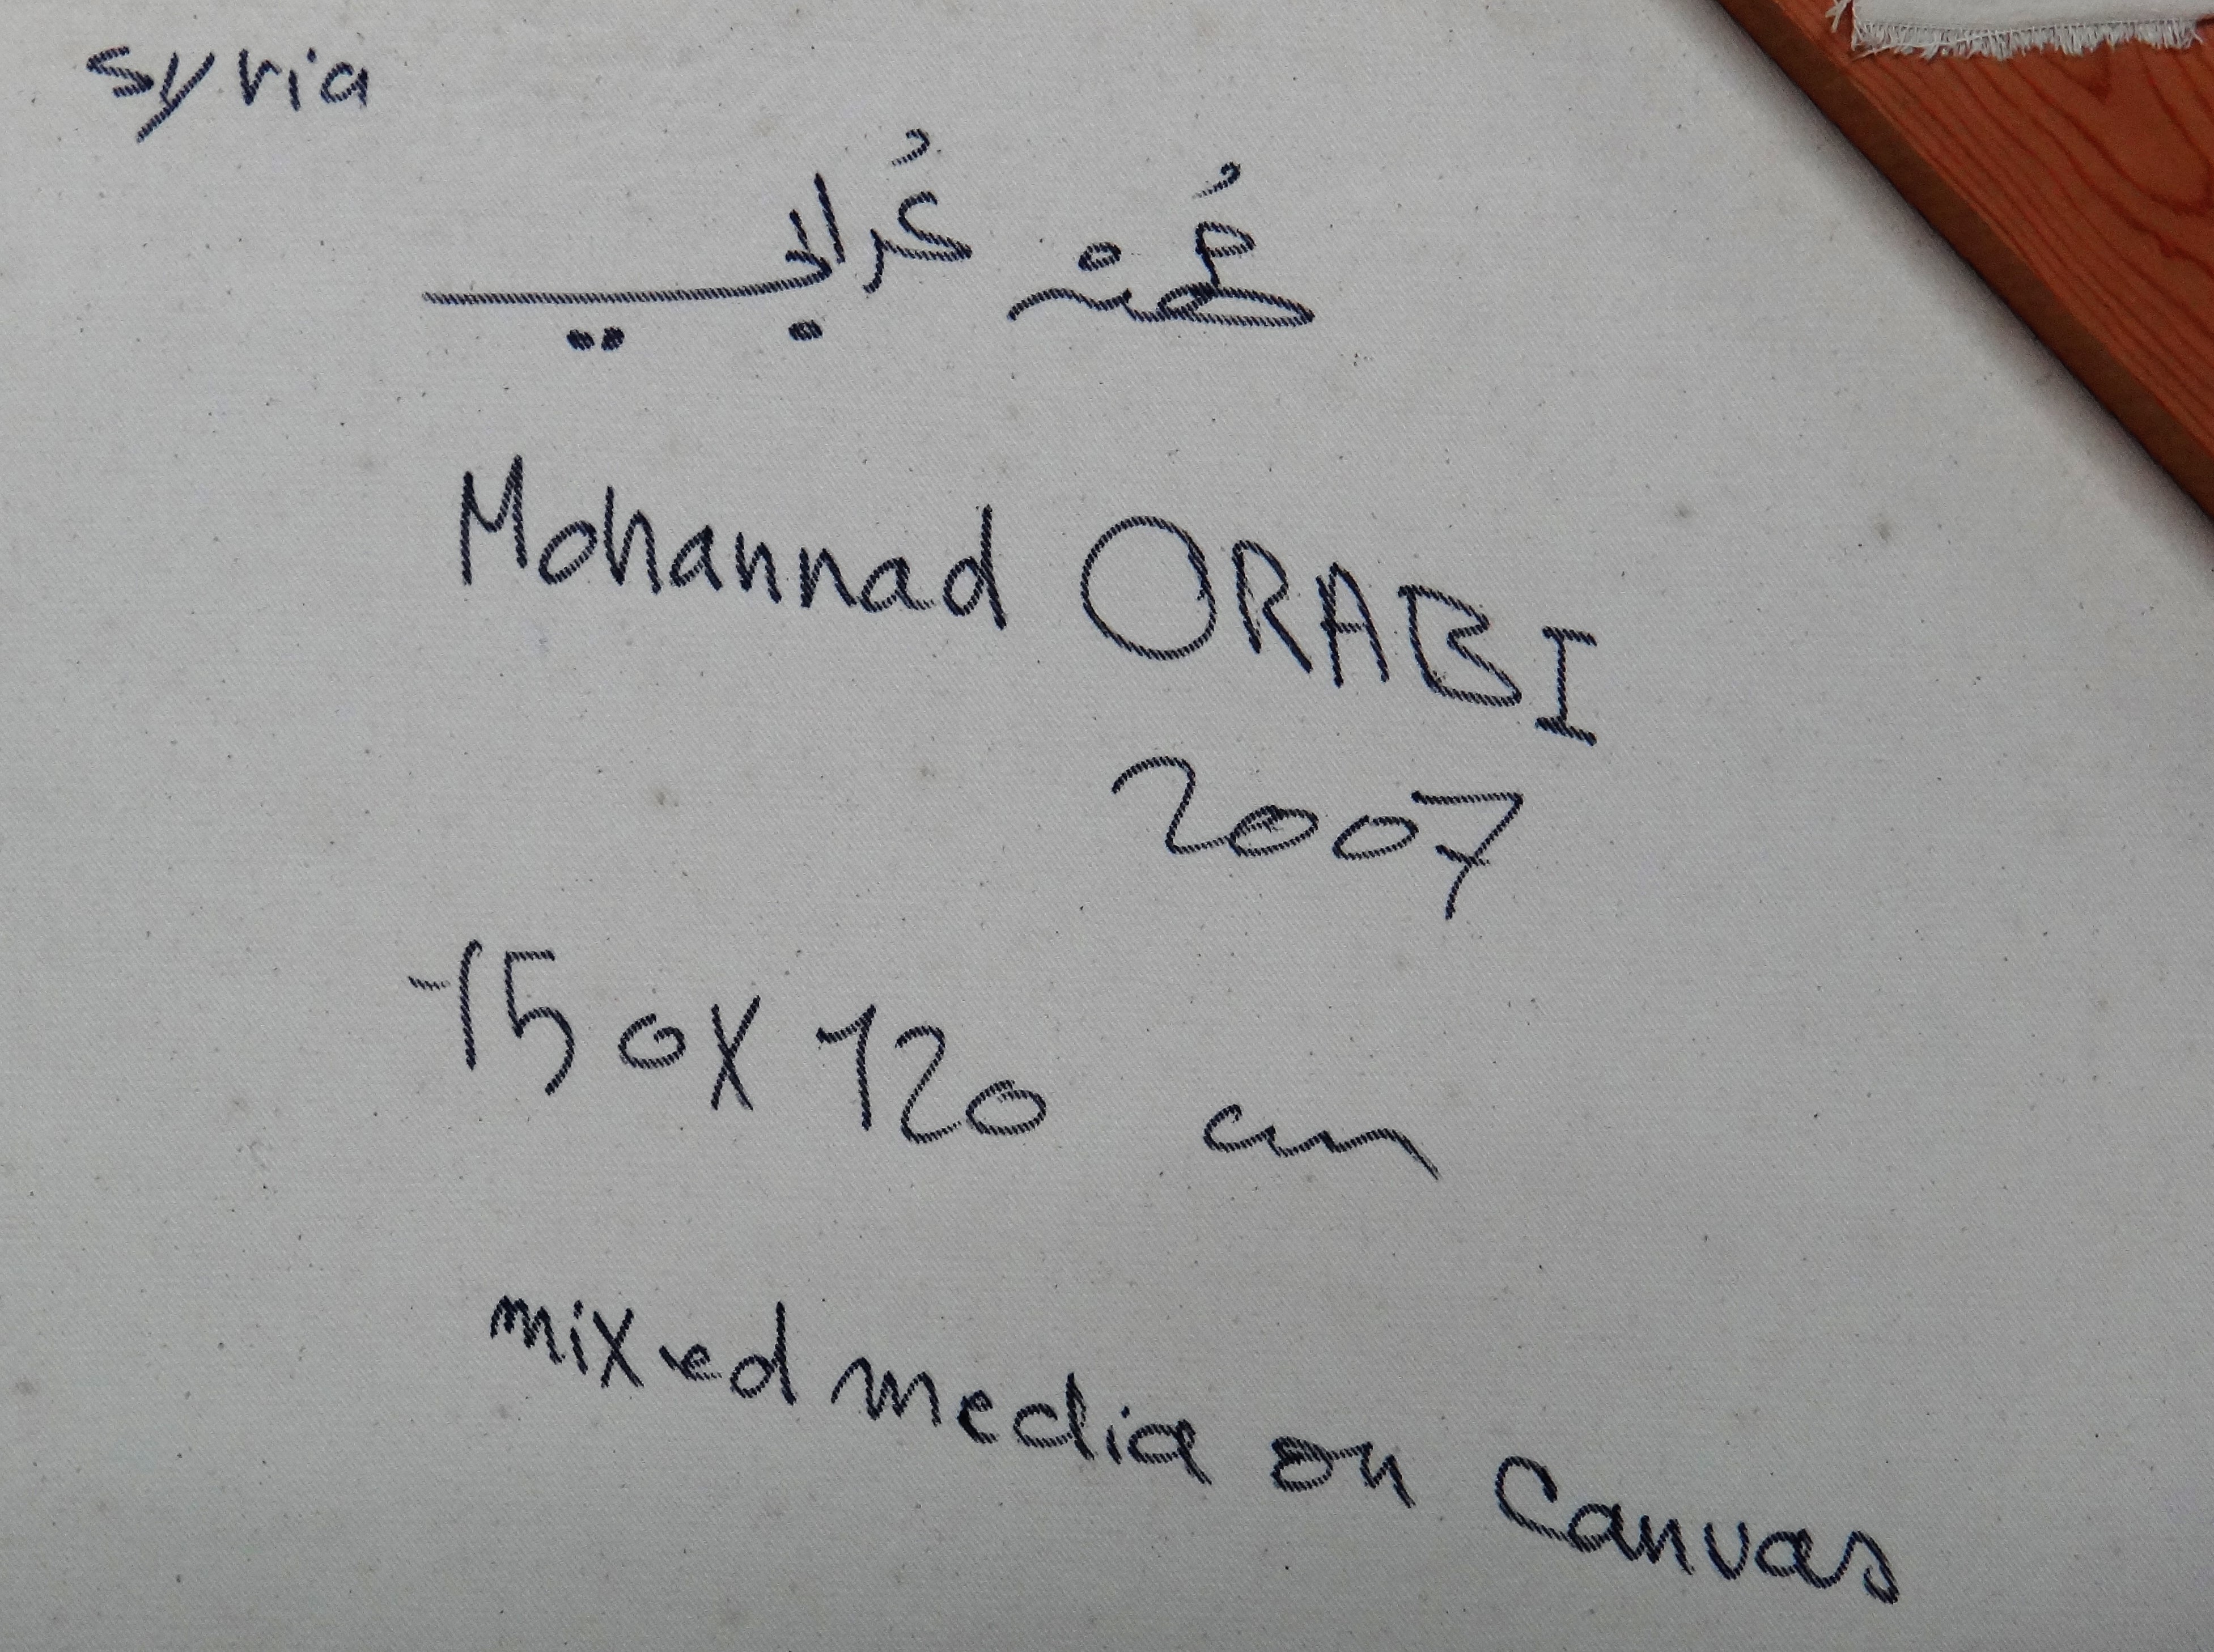 syria
مُهند عُرابي
Mohannad ORABI
2007
150X120 cm
mixed media on Canvas